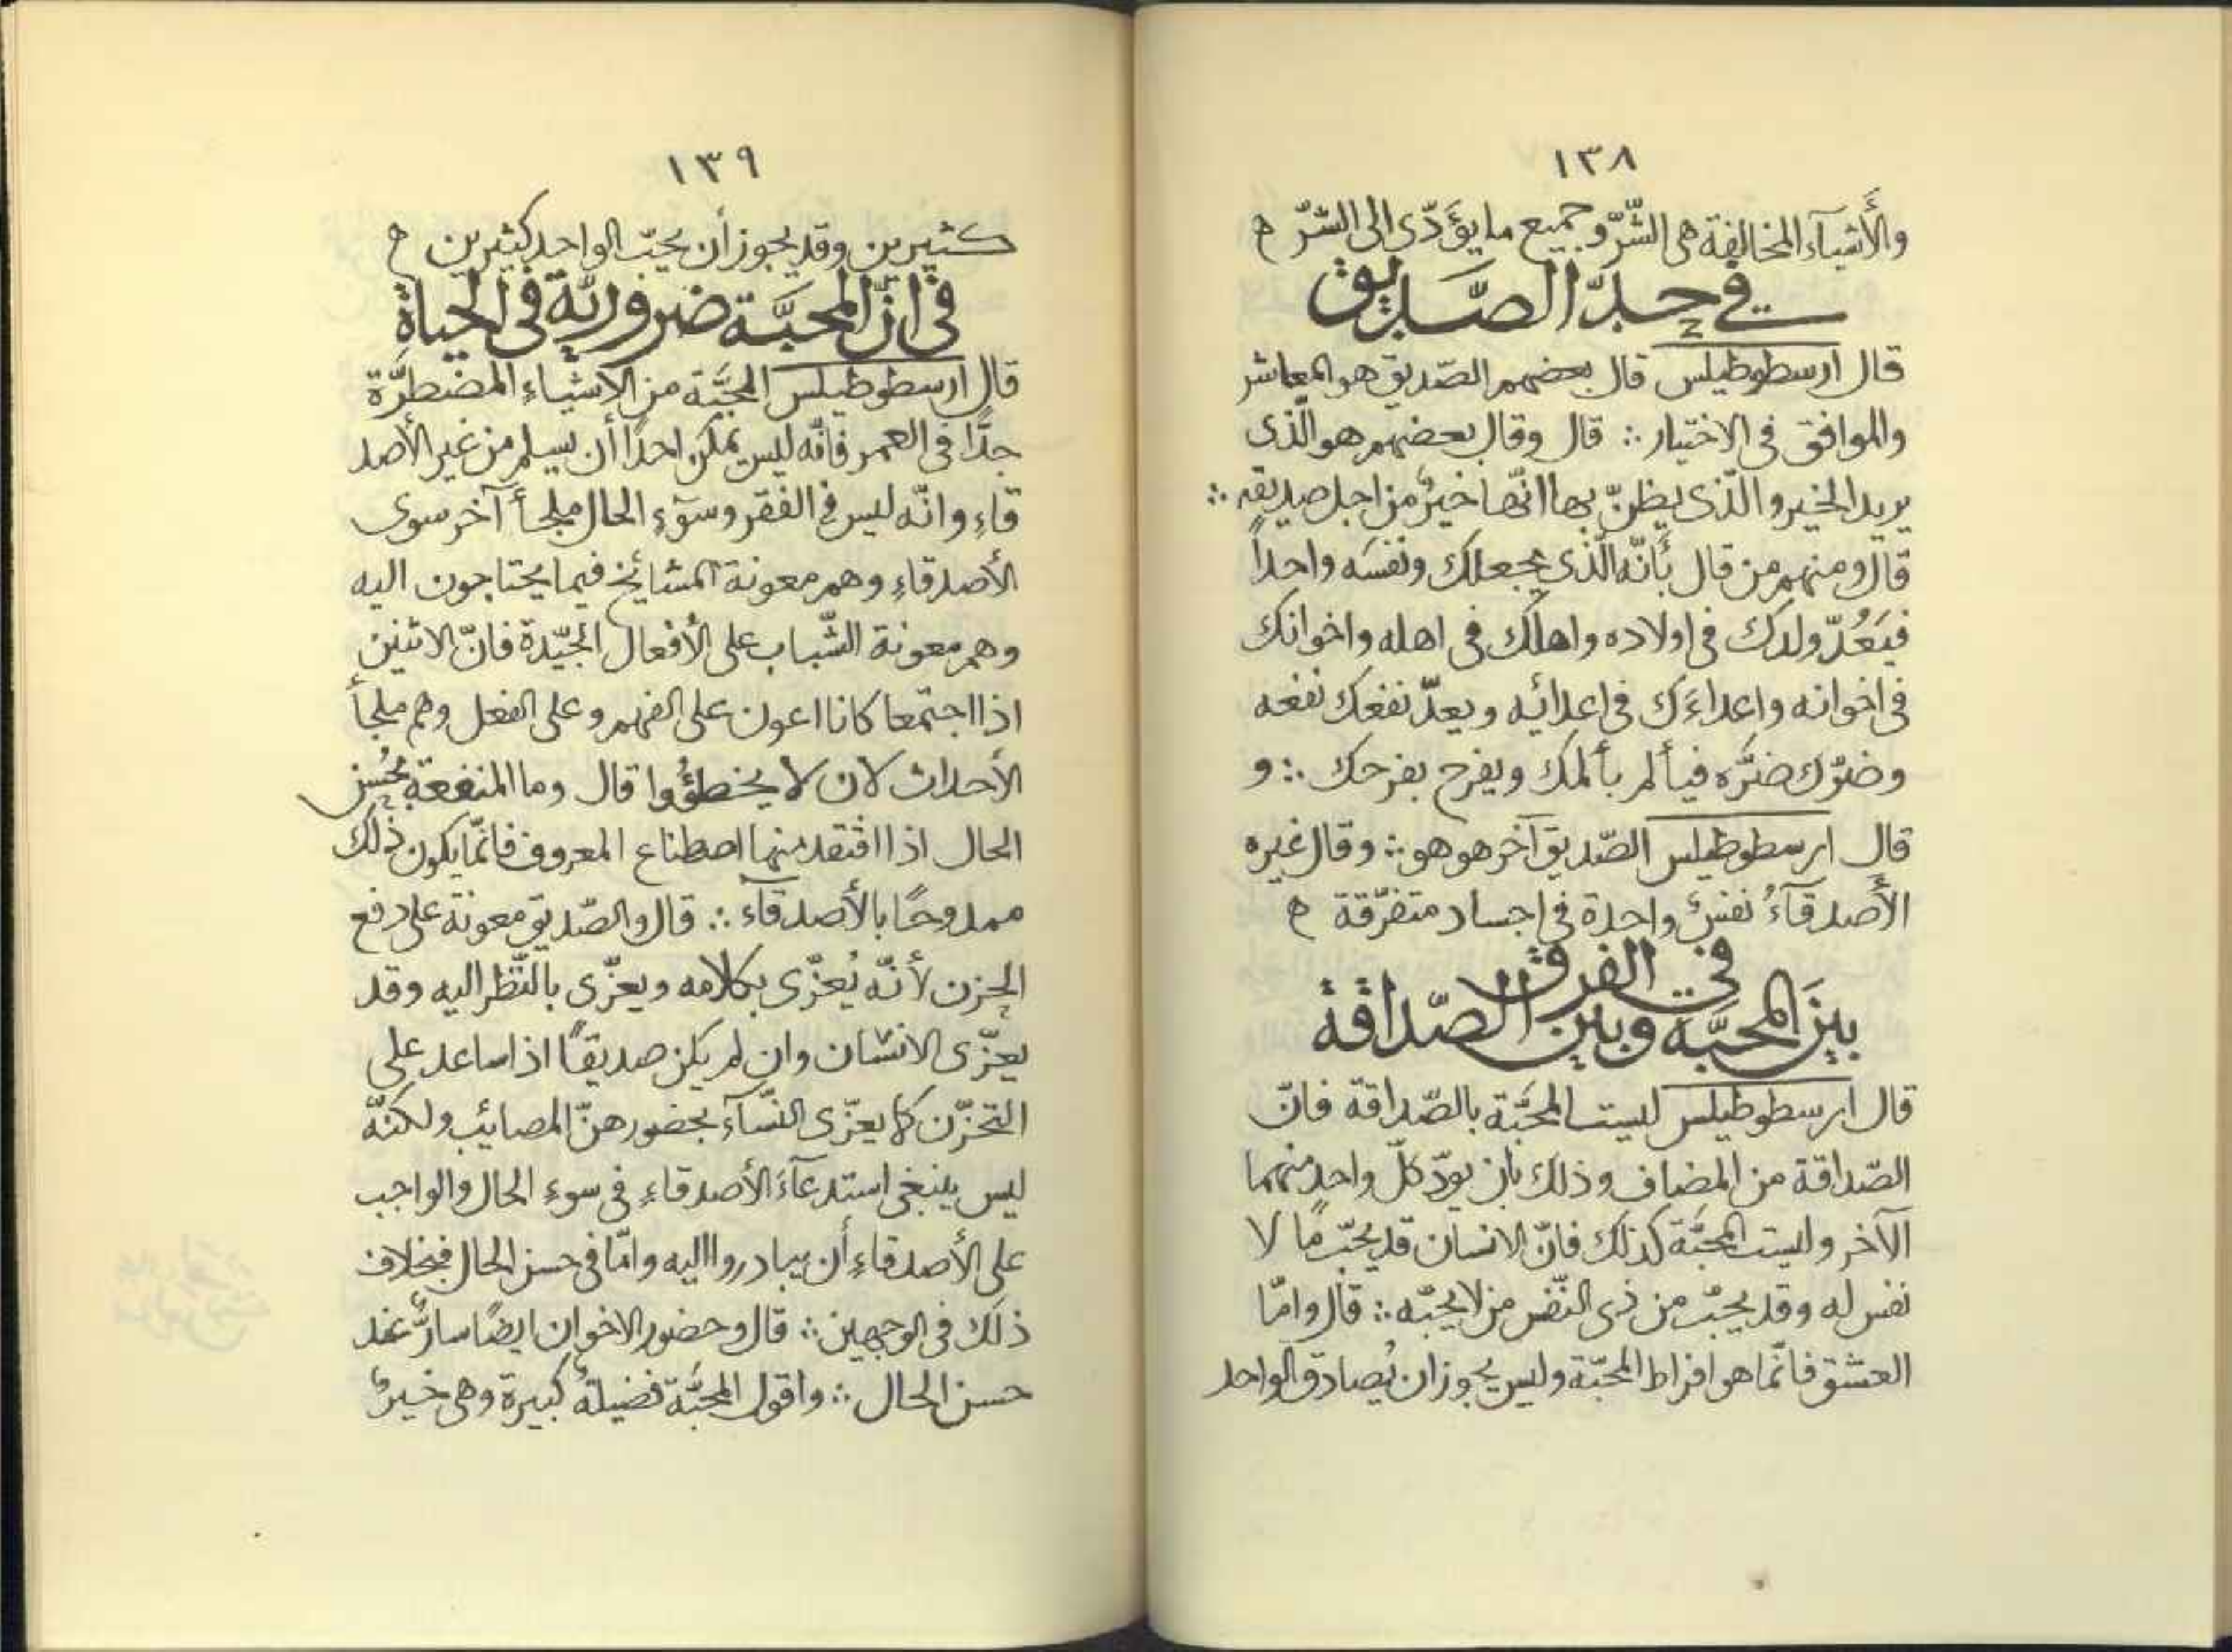 ١٣٨
والأشيآء المخالفة هى الشّرّ وجميع ما يؤدّى الى الشّرّ ه
فى حدّ الصّديق
قال ارسطوطيلس قال بعضهم الصّديق هو المعاشر
والموافق فى الاختيار ∴ قال وقال بعضهم هو الّذى
يريد الخير والّذى يظنّ بها انّها خيرٌ من اجل صديقه ∴
قال ومنهم من قال بأنّه الّذى يجعلك ونفسَه واحداً
فيَعُدّ ولدك فى اولاده واهلك فى اهله واخوانك
فى اخوانه واعداءَك فى اعدائه ويعدّ نفعك نفعه
وضرّك ضرَّه فيألم بألمك ويفرح بفرحك ∴ و
قال ارسطوطيلس الصّديق آخر هو هو ∴ وقال غيره
الأصدقآءُ نفسٌ واحدة فى اجساد متفرّقة ه
فى الفرق
بينَ المحبَّة وبين الصّداقة
قال ارسطوطيلس ليست المحبَّة بالصّداقة فانّ
الصّداقة من المضاف وذلك بان يودّ كلّ واحد منهما
الآخر وليست المحبَّة كذلك فانّ الانسان قد يحبّ ما لا
نفس له وقد يحبّ من ذى النّفس من لا يحبّه ∴ قال وامّا
العشق فانّما هو افراط المحبّة وليس يجوز ان يُصادق الواحد
١٣٩
كثيرين وقد يجوز أن يحبّ الواحد كثيرين ه
فى انّ المحبَّة ضروريّة فى الحياة
قال ارسطوطيلس المحبَّة من الاشياء المضطرَّة
جدّا فى العمر فانّه ليس يمكن احداً أن يسلم من غير الأصد
قاءِ وانّه ليس فى الفقر وسوٓءِ الحال ملجأ آخر سوى
الأصدقاءِ وهم معونة المشائخ فيما يحتاجون اليه
وهم معونة الشّباب على الأفعال الجيّدة فانّ الاثنين
اذا اجتمعا كانا اعون على الفهم وعلى الفعل وهم ملجأ
الأحداث لان لا يخطؤُوا قال وما المنفعة بحُسن
الحال اذا افتقد منها اصطناع المعروف فانّما يكون ذلك
ممدوحًا بالأصدقآء ∴ قال والصّديق معونة على دفع
الحزن لأنّه يُعزّى بكلامه ويعزّى بالنّظر اليه وقد
يعزّى الانسان وان لم يكن صديقًا اذا ساعد على
التحزّن كما يعزّى النّسآء بحضورهنّ المصائب ولكنّه
ليس ينبغى استدعآءَ الأصدقاءِ فى سوءِ الحال والواجب
على الأصدقاءِ أن يبادروا اليه وامّا فى حسن الحال فبخلاف
ذلك فى الوجهين ∴ قال وحضور الاخوان ايضًا سارٌّ عند
حسن الحال ∴ واقول المحبَّة فضيلةٌ كبيرة وهى خيرٌ